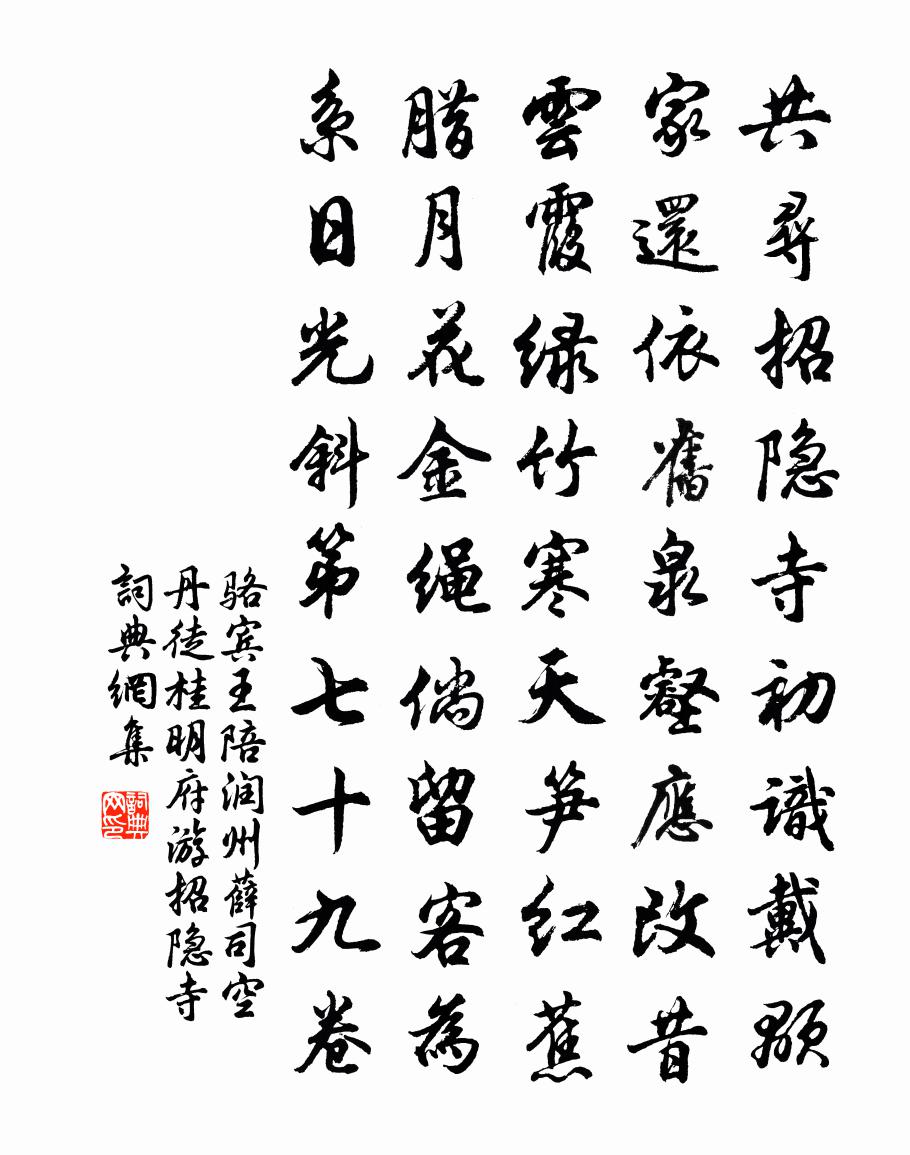 共尋招隐寺初識戴顒
家還依舊泉壑應改昔
雲霞緑竹寒天笋红蕉
腊月花金绳倘留客為
系日光斜第七十九卷
骆宾王陪润州薛司空
丹徒桂明府游招隐寺
詞典網集
詞典网印